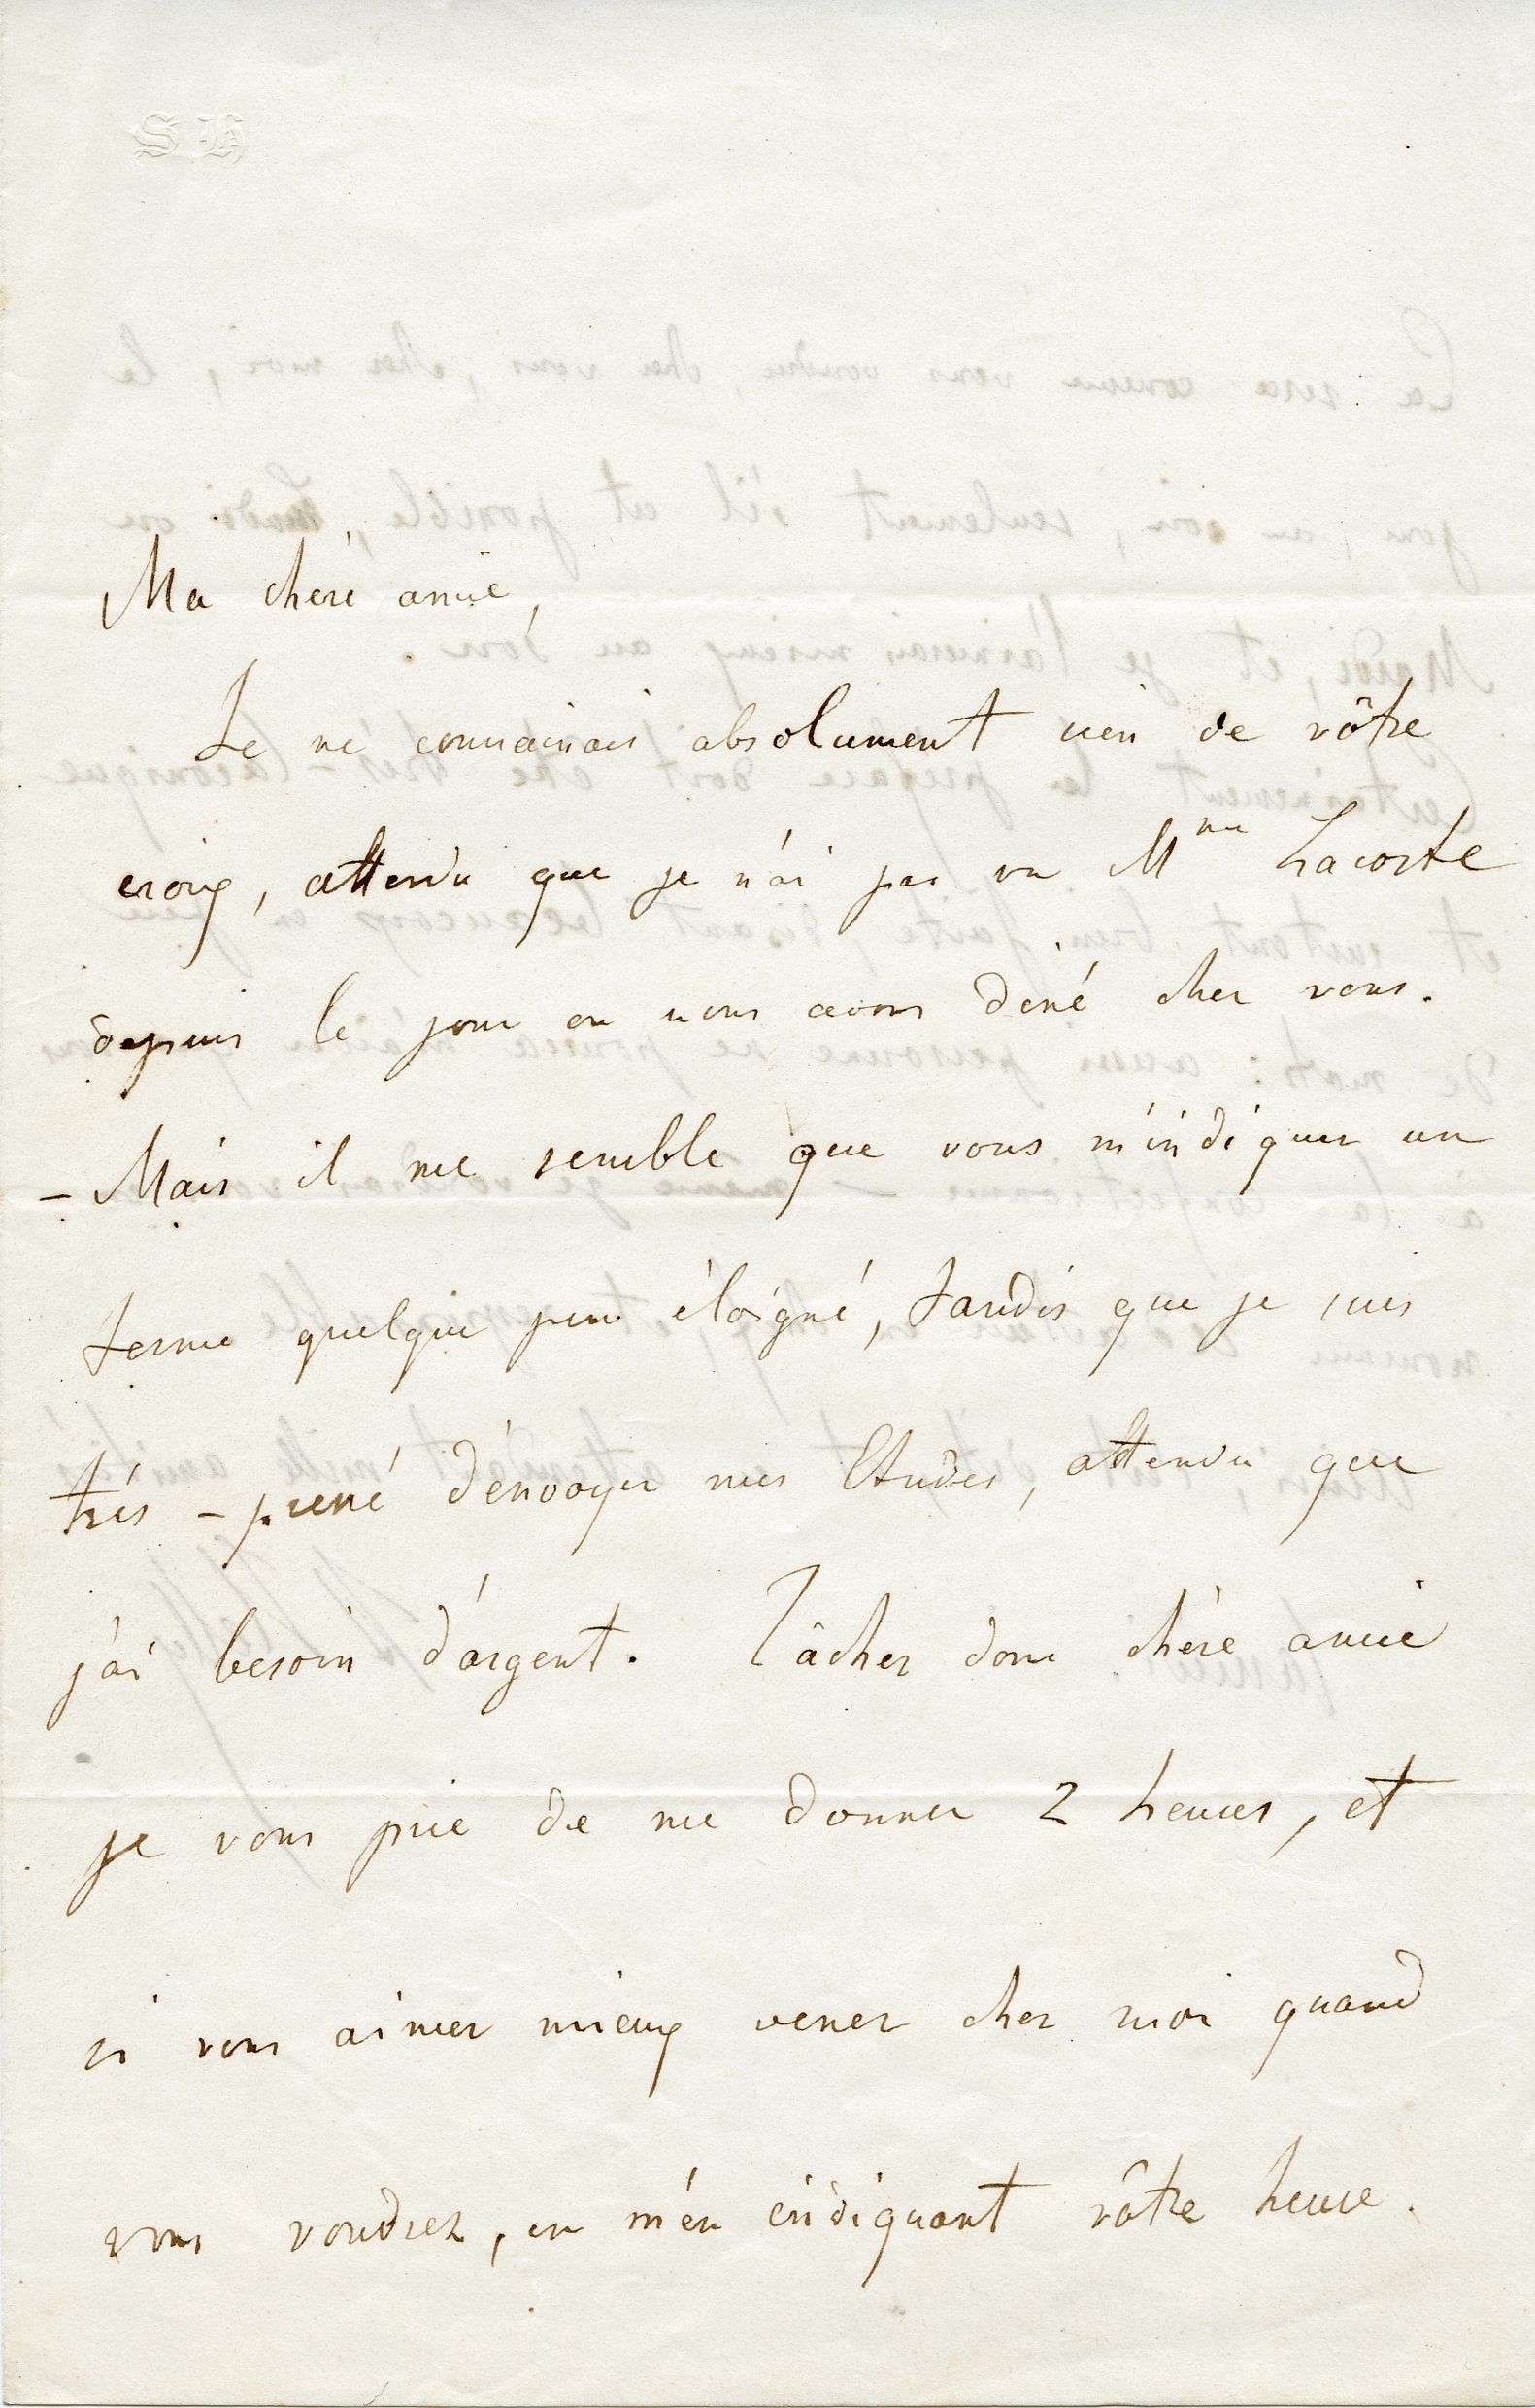 S H
Ma chère amie,
Je ne connaissais absolument rien de vôtre
croix, attendu que je n'ai pas vu Mme Lacoste
depuis le jour ou nous avons diné chez vous.
- Mais il me semble que vous m'indiquez un
terme quelque peu éloigné, tandis que je suis
trés-pressé d'énvoyer mes Etudes, attendu que
j'ai besoin d'argent. Tâchez donc chère amie
je vous prie de me donner 2 heures, et
si vous aimez mieux venez chez moi quand
vous voudrez, en m'en indiquant vôtre heure.